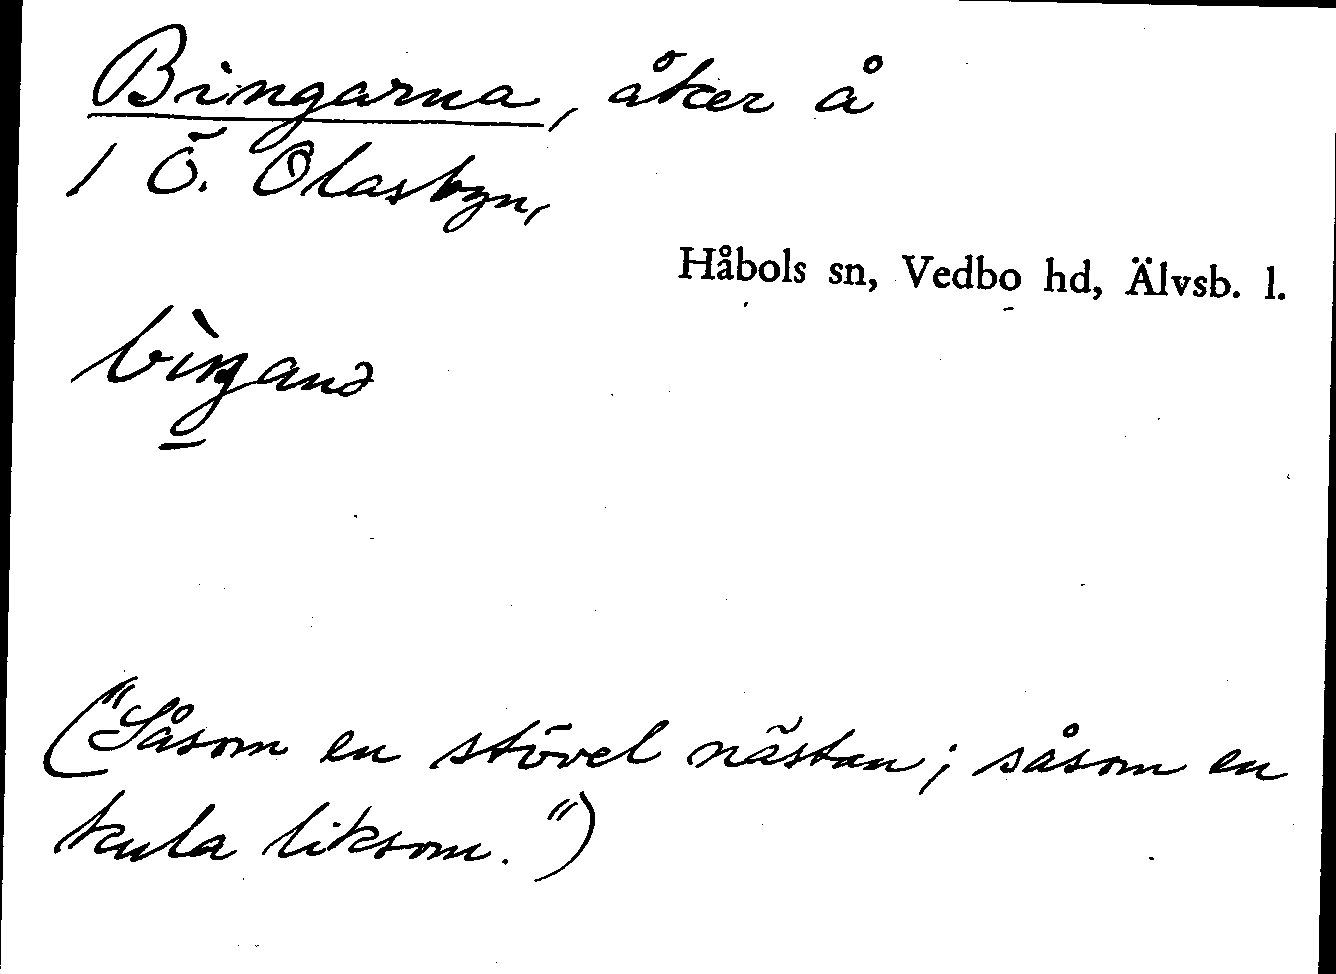 Bingarna, åker å
1 Ö. Olasbyn,
Håbols sn, Vedbo hd, Älvsb. l.
bìŋanə
("Såsom en stövel nästan; såsom en
kula liksom.")